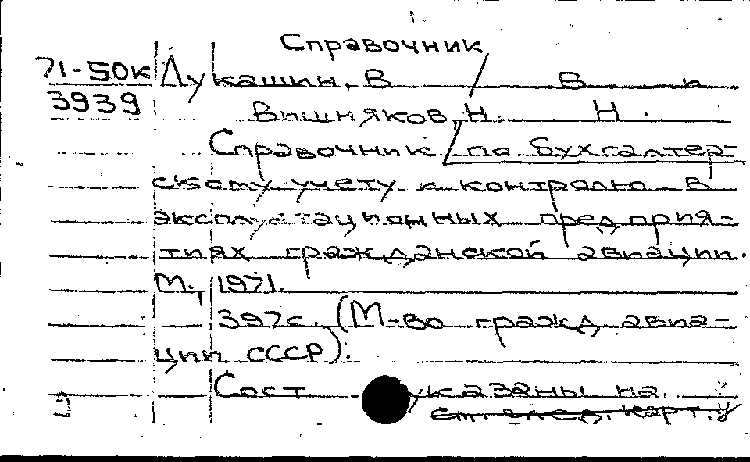 Справочник
71-50к Лукашин, В В и
3939 Вишняков, Н. Н.
Справочник / по бухгалтер-
скому учету и контролю в
эксплуатационных предприя-
тиях гражданской авиации.
М., 1971.
397с. (М-во гражд. авиа-
ции СССР).
Сост указаны на
см. след. карт.